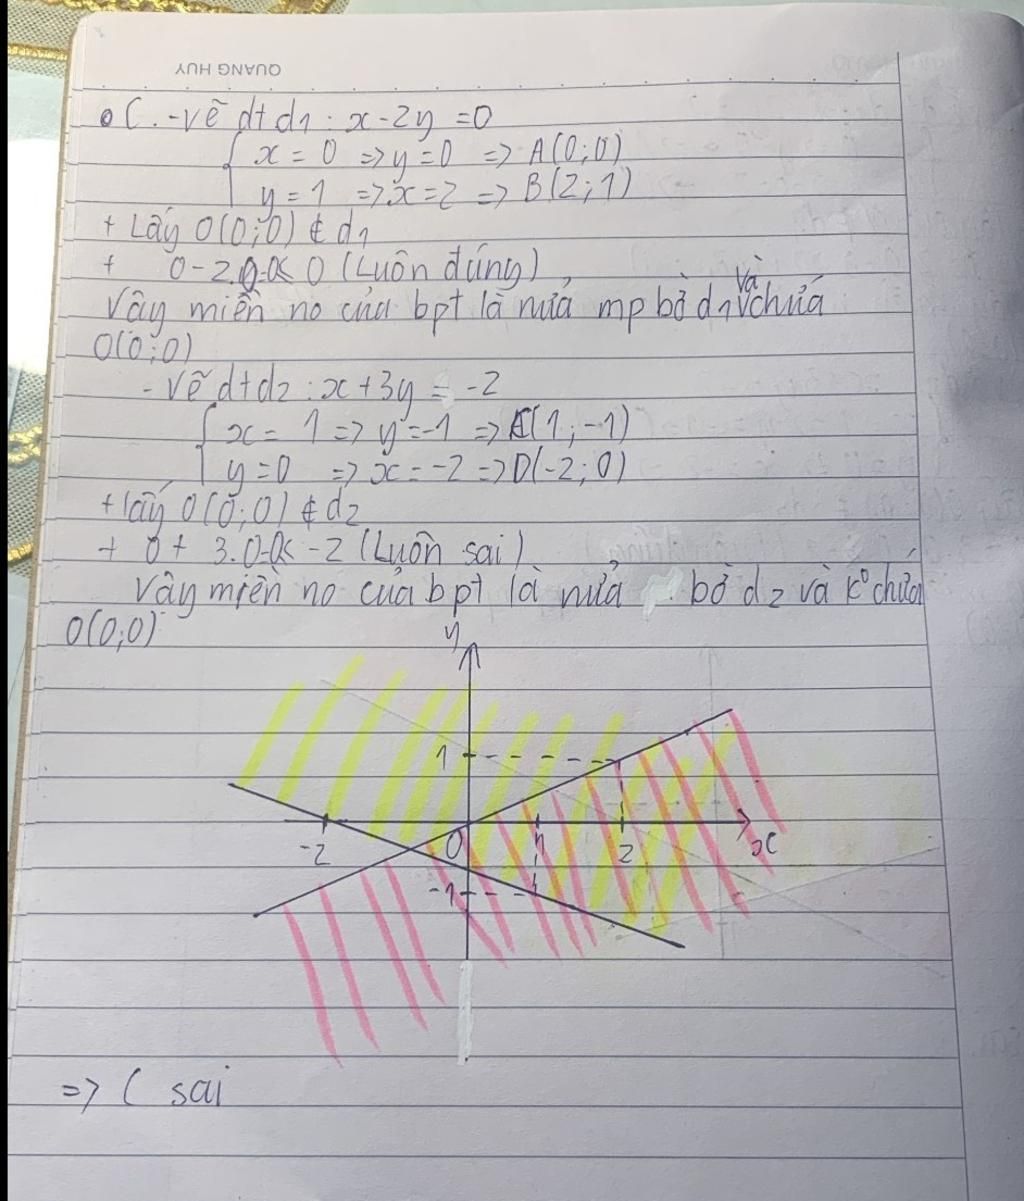 QUANG HUY
C. - vẽ dt d1 : x - 2y = 0
x = 0 => y = 0 => A(0; 0)
y = 1 => x = 2 => B(2; 1)
+ Lấy O(0; 0) ∉ d1
+ 0 - 2.0 = 0 < 0 (Luôn đúng)
Vậy miền no của bpt là nửa mp bờ d1 và chứa
O(0; 0)
- Vẽ dt d2 : x + 3y = -2
x = 1 => y = -1 => C(1; -1)
y = 0 => x = -2 => D(-2; 0)
+ lấy O(0; 0) ∉ d2
+ 0 + 3.0 = 0 < -2 (Luôn sai)
Vậy miền no của bpt là nửa bờ d2 và k° chứa
O(0; 0)
y
1
-2 0 1 2 x
-1
=> C sai